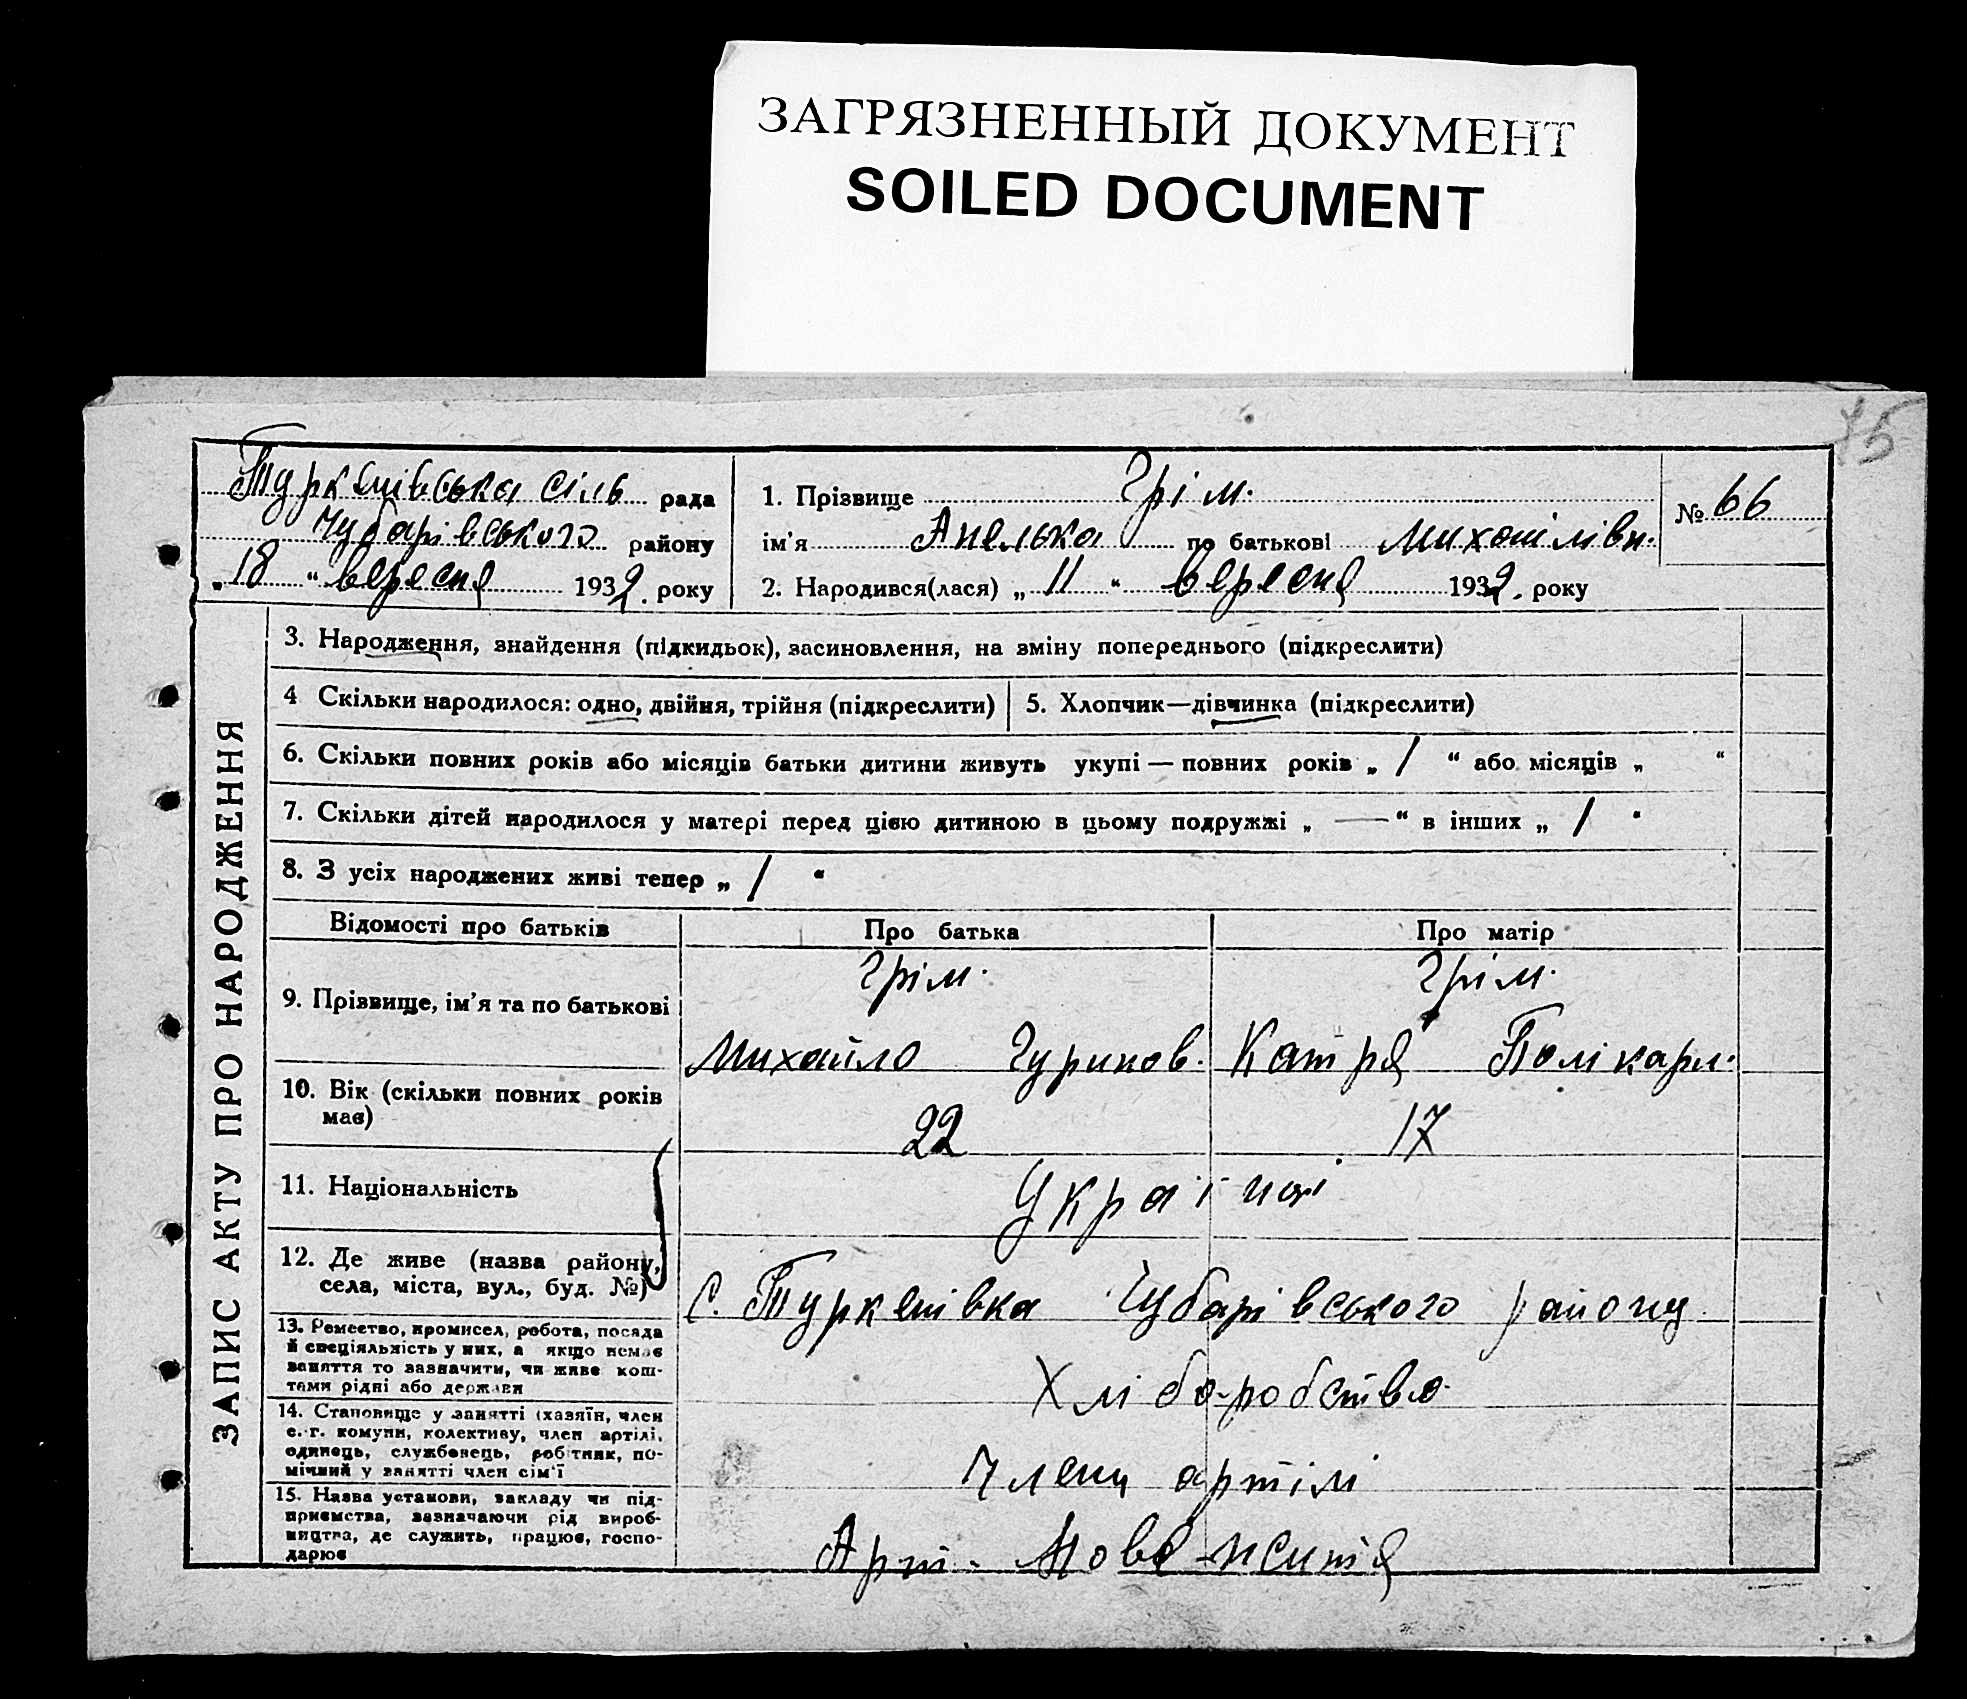 ЗАГРЯЗНЕННЫЙ ДОКУМЕНТ
SOILED DOCUMENT
75
Туркенівська сіль рада
Чубарівського району
„18“ вересня 1932. року
1. Прізвище Грім.
ім'я Анелька по батькові Михайлівн.
2. Народився(лася) „11“ вересня 1932. року
№ 66
ЗАПИС АКТУ ПРО НАРОДЖЕННЯ
3. Народження, знайдення (підкидьок), засиновлення, на зміну попереднього (підкреслити)
4 Скільки народилося: одно, двійня, трійня (підкреслити)
5. Хлопчик—дівчинка (підкреслити)
6. Скільки повних років або місяців батьки дитини живуть укупі — повних років „ 1 “ або місяців „ “
7. Скільки дітей народилося у матері перед цією дитиною в цьому подружжі „ — “ в інших „ 1 “
8. З усіх народжених живі тепер „ 1 “
Відомості про батьків
Про батька
Про матір
9. Прізвище, ім'я та по батькові
Грім.
Михайло
Грім.
Катря Полікарп.
10. Вік (скільки повних років
має)
22
17
11. Національність
Україн
12. Де живе (назва району,
села, міста, вул., буд. №)
с. Туркенівка Чубарівського району
13. Ремество, промисел, робота, посада
й спеціяльність у них, а якщо немає
заняття то зазначити, чи живе кош-
тами рідні або держави
Хліборобство
14. Становище у занятті (хазяїн, член
с.-г. комуни, колективу, член артілі,
одинець, службовець, робітник, по-
мічний у занятті член сім'ї
Члени артілі
15. Назва установи, закладу чи під-
приємства, зазначаючи рід вироб-
ництва, де служить, працює, госпо-
дарює
Арт. Нове життя